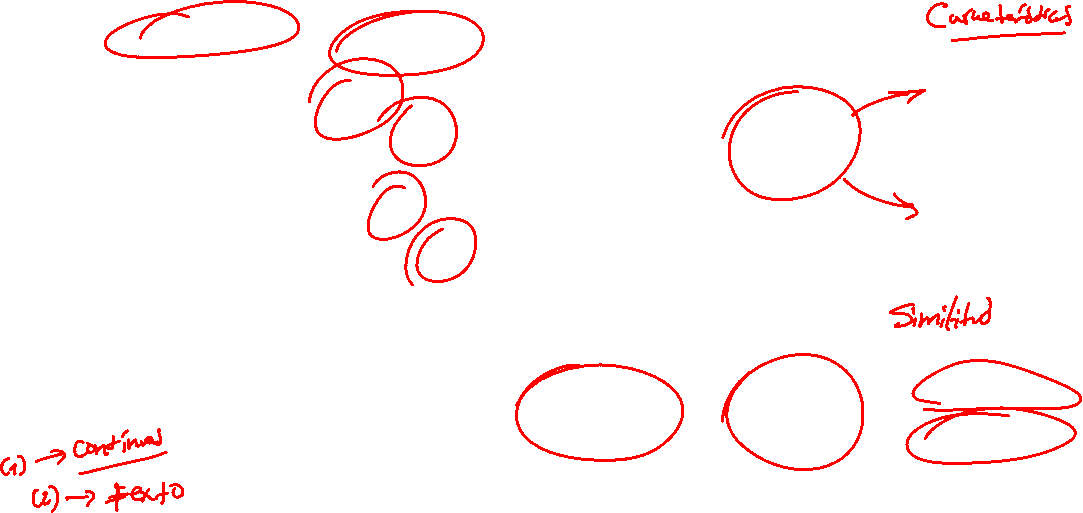 Caracteristicas
Similitud
(1) → continuas
(2) → texto